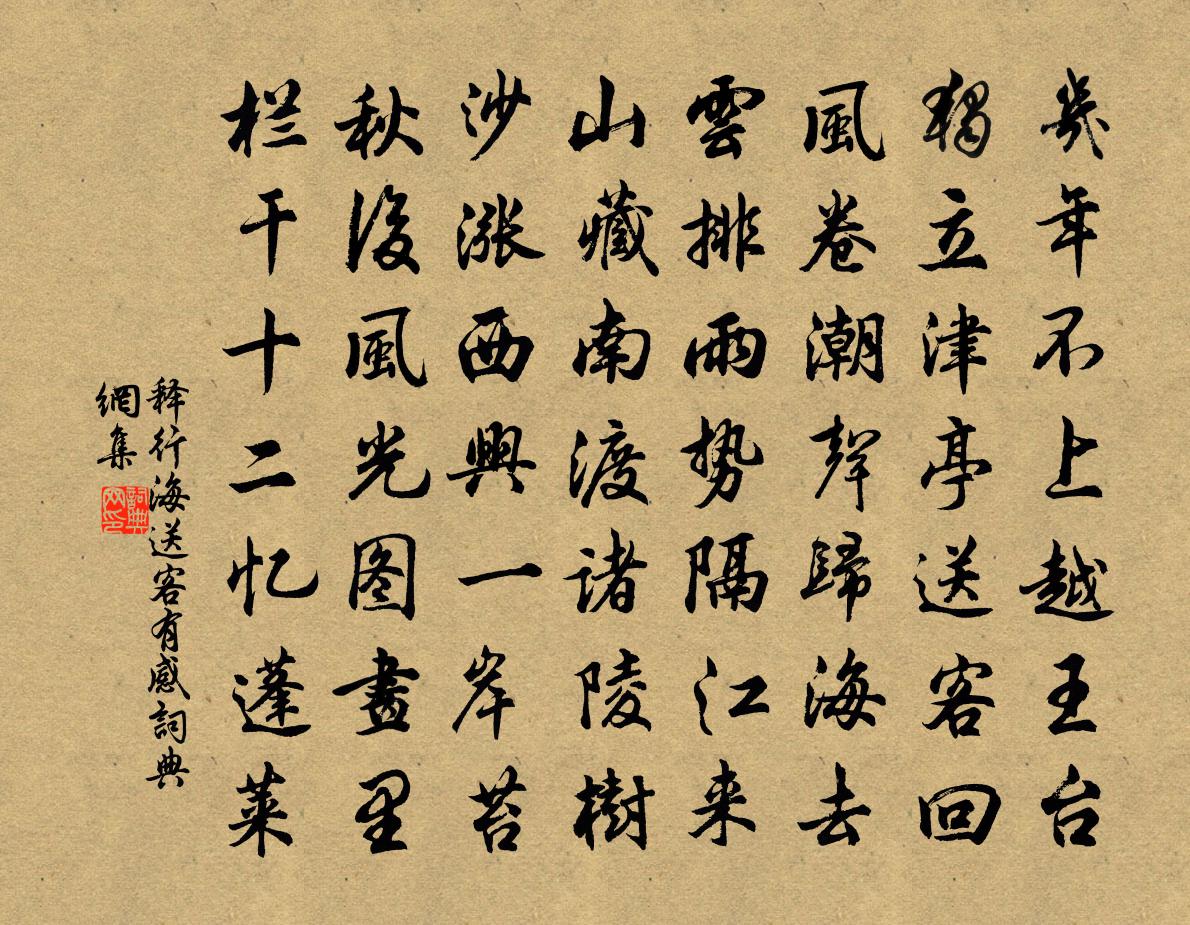 㡬年不上越王台
獨立津亭送客回
風卷潮聲歸海去
雲排雨勢隔江来
山藏南渡诸陵樹
沙漲西興一岸苔
秋後風光图畫里
栏干十二忆蓬莱
释行海送客有感詞典
網集
詞典
网印